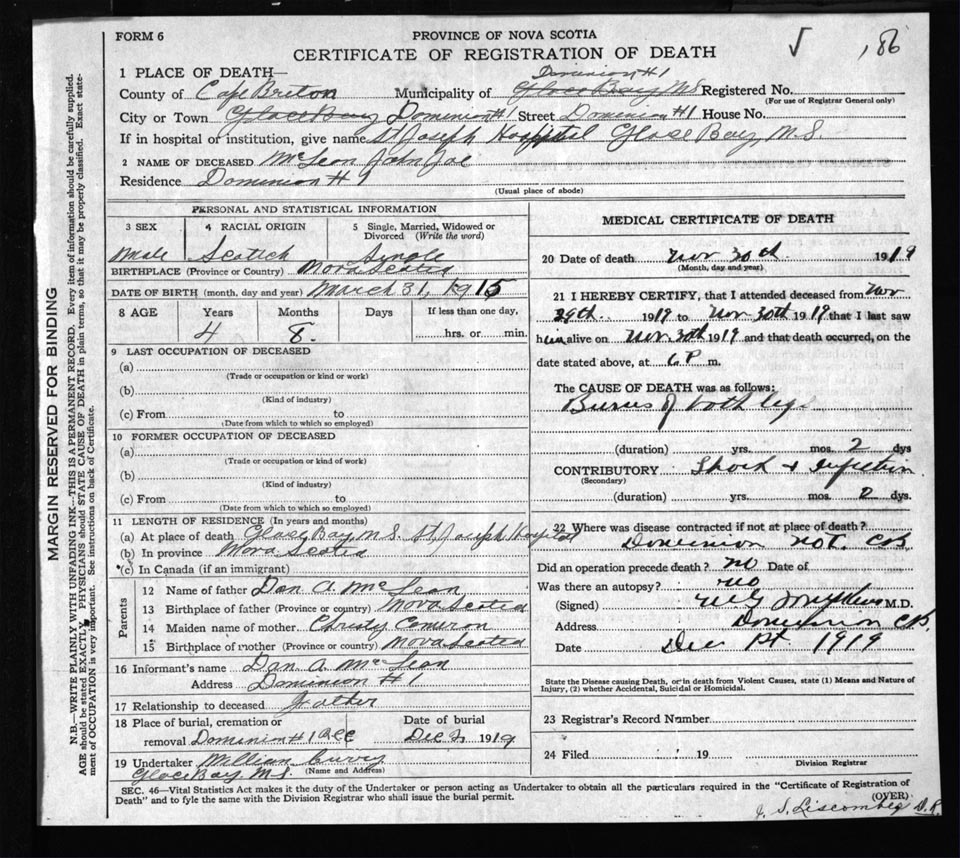 FORM 6
PROVINCE OF NOVA SCOTIA
CERTIFICATE OF REGISTRATION OF DEATH
186
1 PLACE OF DEATH—
Dominion #1
County of Cape Breton Municipality of Glace Bay N.S Registered No.
(For use of Registrar General only)
City or Town Glace Bay Dominion #1 Street Dominion #1 House No.
If in hospital or institution, give name St Joseph Hospital Glace Bay, N.S.
2 NAME OF DECEASED McLean John Joe
Residence Dominion #1
(Usual place of abode)
PERSONAL AND STATISTICAL INFORMATION
3 SEX 4 RACIAL ORIGIN 5 Single, Married, Widowed or Divorced (Write the word)
Male Scotch Single
BIRTHPLACE (Province or Country) Nova Scotia
DATE OF BIRTH (month, day and year) March 31, 1915
8 AGE Years Months Days If less than one day,
4 8. hrs. or min.
9 LAST OCCUPATION OF DECEASED
(a)
(Trade or occupation or kind or work)
(b)
(Kind of industry)
(c) From to
(Date from which to which so employed)
10 FORMER OCCUPATION OF DECEASED
(a)
(Trade or occupation or kind of work)
(b)
(Kind of industry)
(c) From to
(Date from which to which so employed)
11 LENGTH OF RESIDENCE (In years and months)
(a) At place of death Glace Bay N.S. St Joseph Hospital
(b) In province Nova Scotia
(c) In Canada (if an immigrant)
Parents
12 Name of father Dan A. McLean
13 Birthplace of father (Province or country) Nova Scotia
14 Maiden name of mother Christy Cameron
15 Birthplace of mother (Province or country) Nova Scotia
16 Informant's name Dan A. McLean
Address Dominion #1
17 Relationship to deceased Father
18 Place of burial, cremation or removal Dominion #1 Date of burial Dec 2, 1919
19 Undertaker William Curry
(Name and Address)
Glace Bay N.S.
MEDICAL CERTIFICATE OF DEATH
20 Date of death Nov 30th. 1919
(Month, day and year)
21 I HEREBY CERTIFY, that I attended deceased from Nov
29th. 1919 to Nov 30th 1919 that I last saw
him alive on Nov 30th 1919 and that death occurred, on the
date stated above, at 6 P m.
The CAUSE OF DEATH was as follows:
Burns of both legs
(duration) yrs. mos. 2 dys
CONTRIBUTORY Shock & Infection
(Secondary)
(duration) yrs. mos. 2 dys.
22 Where was disease contracted if not at place of death?
Dominion C.B.
Did an operation precede death? no Date of
Was there an autopsy? no
(Signed) M.D.
Address Dominion C.B.
Date Dec 1919
State the Disease causing Death, or in death from Violent Causes, state (1) Means and Nature of
Injury, (2) whether Accidental, Suicidal or Homicidal.
23 Registrar's Record Number
24 Filed 19
Division Registrar
SEC. 46—Vital Statistics Act makes it the duty of the Undertaker or person acting as Undertaker to obtain all the particulars required in the "Certificate of Registration of
Death" and to fyle the same with the Division Registrar who shall issue the burial permit.
(OVER)
MARGIN RESERVED FOR BINDING
N.B.—WRITE PLAINLY WITH UNFADING INK—THIS IS A PERMANENT RECORD. Every item of information should be carefully supplied.
AGE should be stated EXACTLY. PHYSICIANS should STATE CAUSE OF DEATH in plain terms, so that it may be properly classified. Exact statement of OCCUPATION is very important. See instructions on back of Certificate.